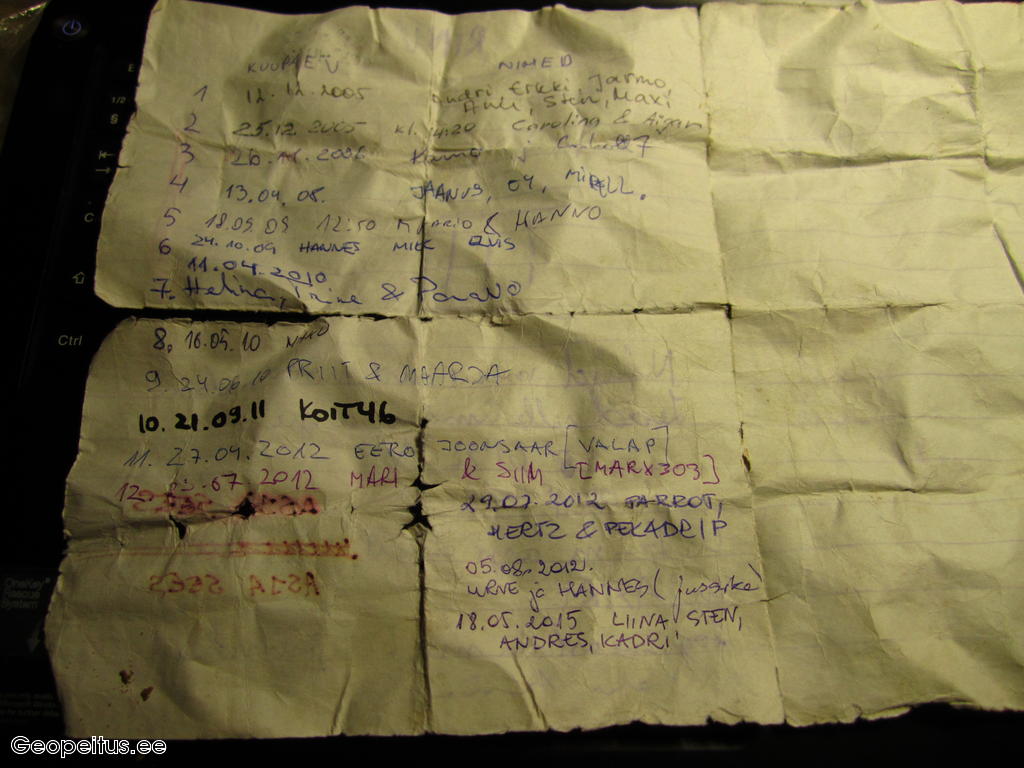 KUUPÄEV NIMED
1 12.12.2005 Andri, Erkki, Jarmo,
Anti, Sten, Maxi
2 25.12.2005 kl. 14:20 Carolina & Aigar
3 26. .2006
4 13.04.08. JAANUS, 04,
5 18.09.09 12:50 MAARIO & HANNO
6 24.10.09 HANNES MIKK
11.04.2010
7. Helina, Triine &
8. 16.05.10
9. 24.06.10 PRIIT & MAARJA
10. 21.09.11 KOIT46
11. 27.04.2012 EERO JOONSAAR [VALAP]
12. .07 2012 MARI & SIIM [MARX303]
29.07.2012 PARROT,
HERTZ & PEKADRIP
05.08.2012.
URVE ja HANNES (jussike)
18.05.2015 LIINA STEN,
ANDRES, KADRI
Ctrl
OneKey
Rescue
System
Geopeitus.ee